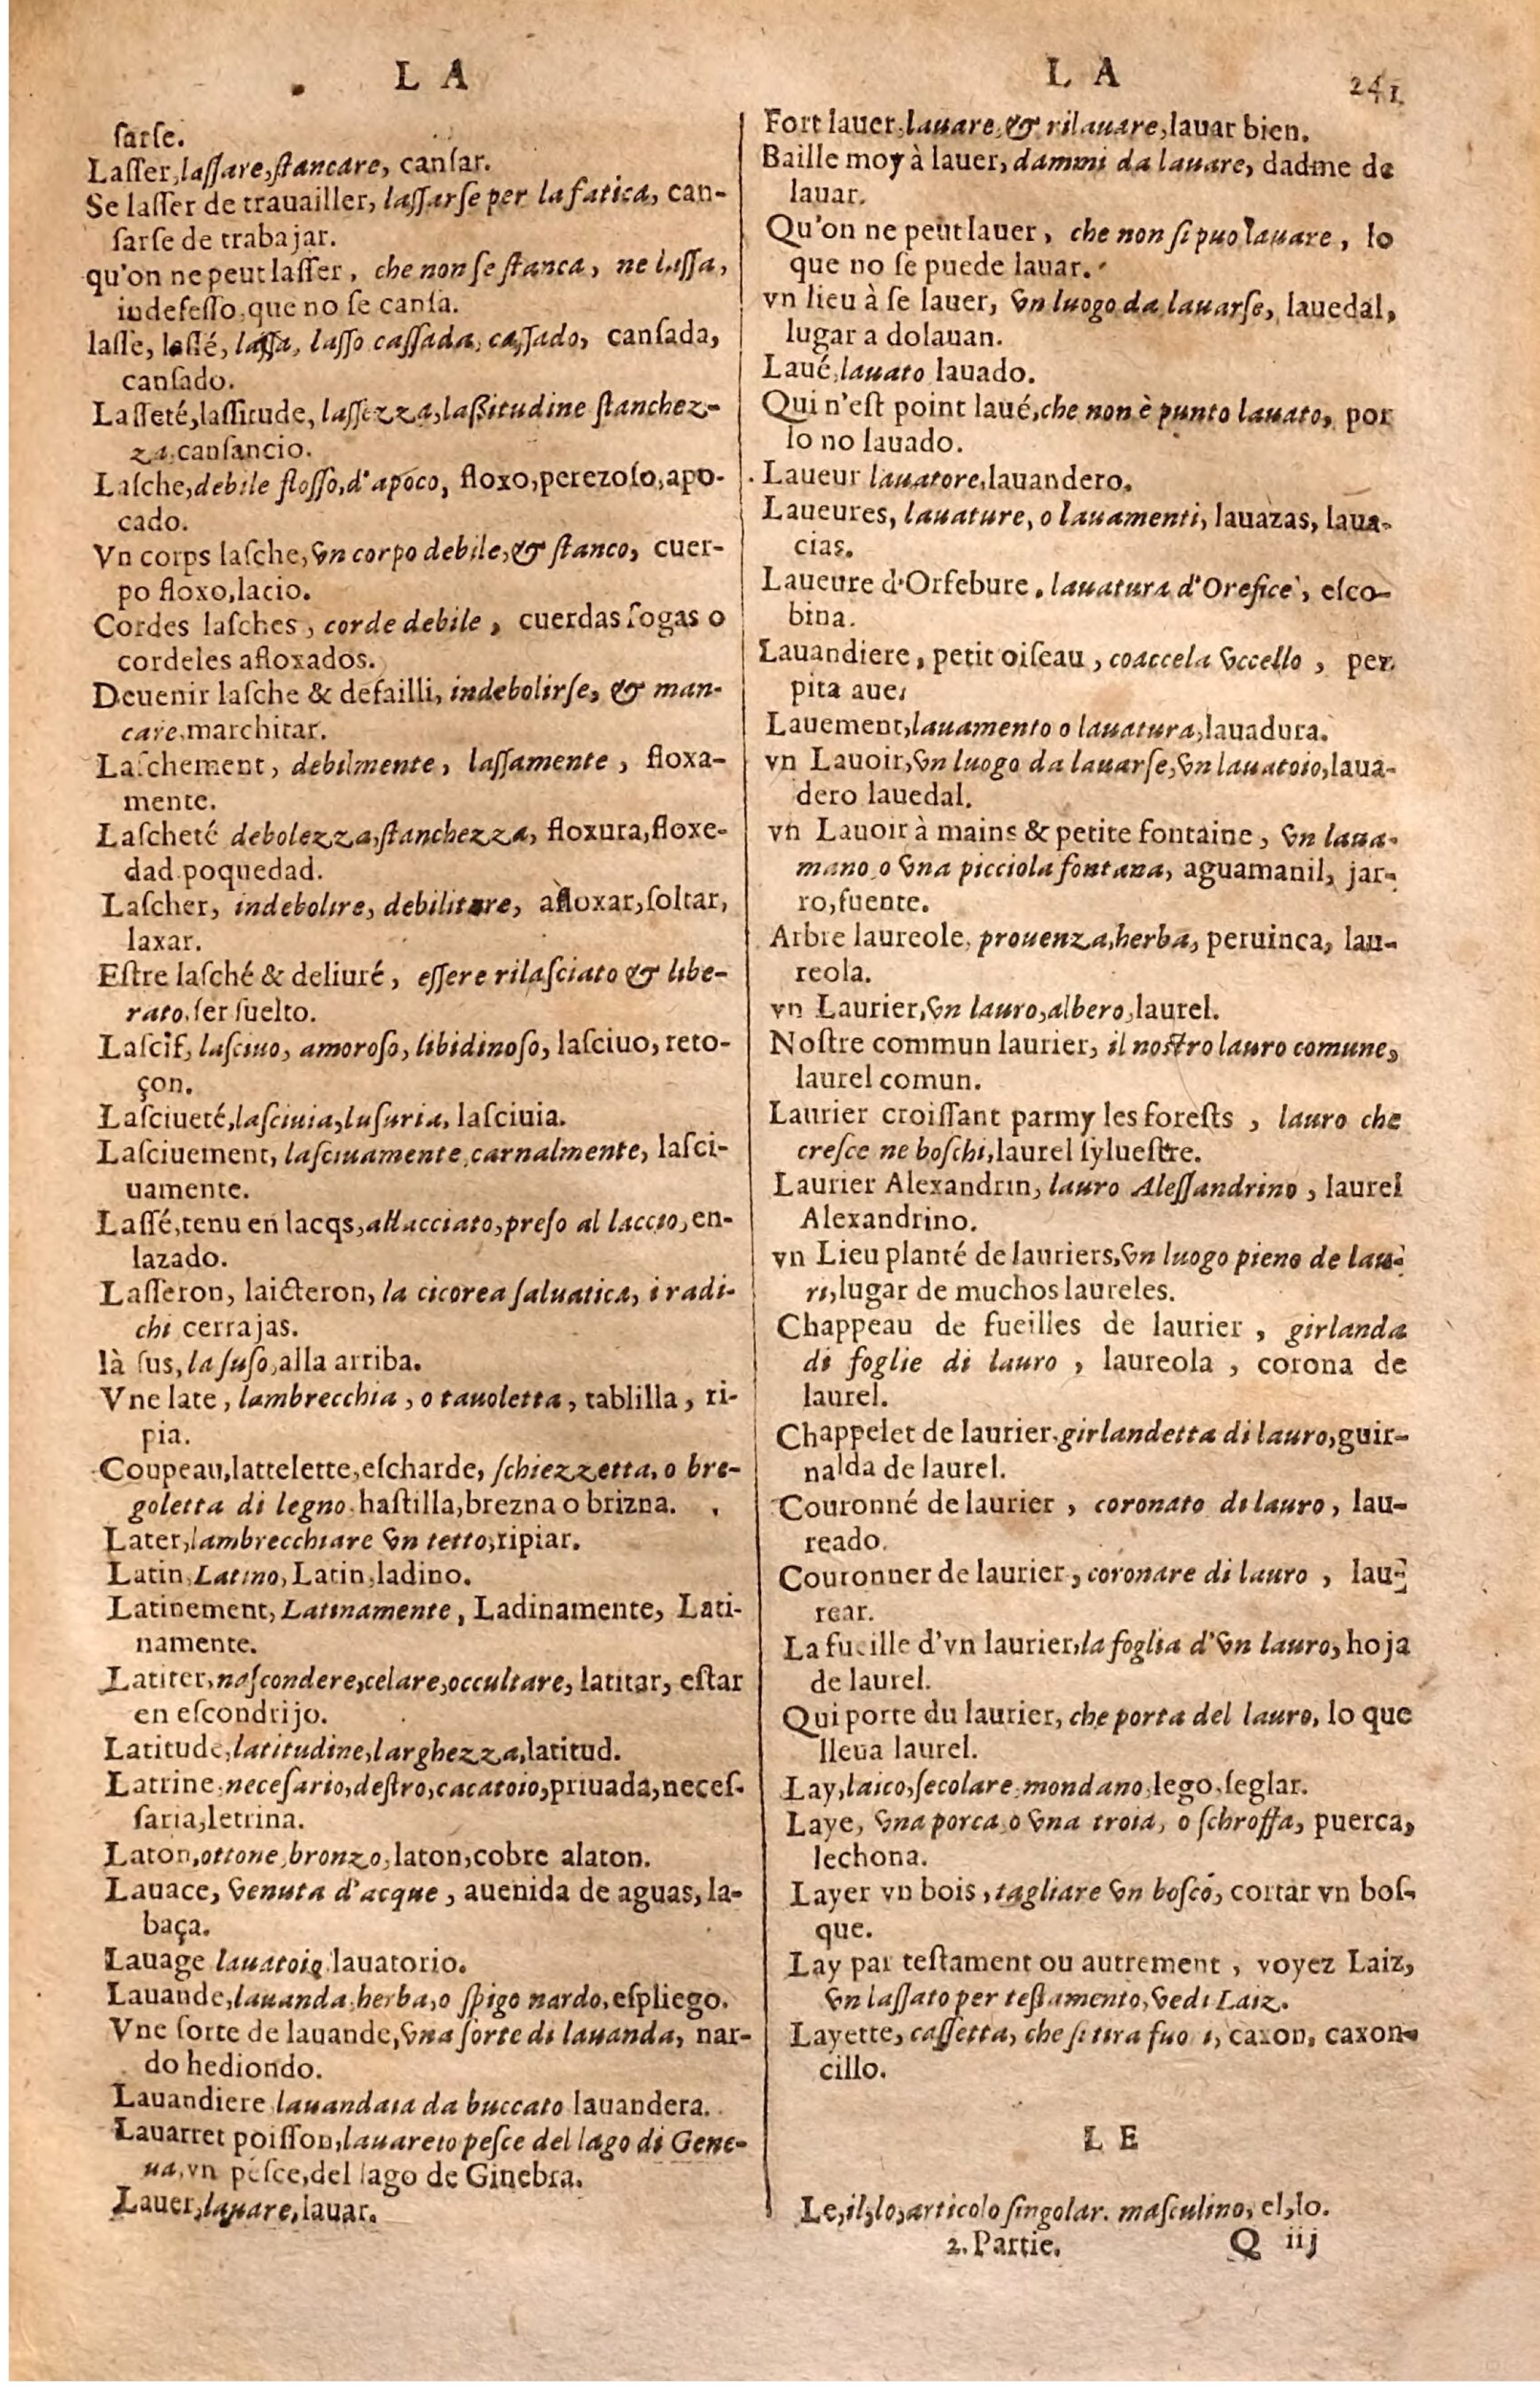 L A
ſarſe.
Laſſer, laſſare, ſtancare, canſar.
Se laſſer de trauailler, laſſarſe per la fatica, can-
ſarſe de trabajar.
qu'on ne peut laſſer, che non ſe ſtanca, ne laſſa,
indefeſſo, que no ſe canſa.
laſſe, laſſé, laſſa, laſſo caſſada, caſſado, canſada,
canſado.
Laſſeté, laſſitude, laſſezza, laſſitudine ſtanchez-
za, canſancio.
Laſche, debile floſſo, d'apoco, floxo, perezoſo, apo-
cado.
Vn corps laſche, vn corpo debile, & ſtanco, cuer-
po floxo, lacio.
Cordes laſches, corde debile, cuerdas ſogas o
cordeles afloxados.
Deuenir laſche & defailli, indebolirſe, & man-
care, marchitar.
Laſchement, debilmente, laſſamente, floxa-
mente.
Laſcheté debolezza, ſtanchezza, floxura, floxe-
dad poquedad.
Laſcher, indebolire, debilitare, afloxar, ſoltar,
laxar.
Eſtre laſché & deliuré, eſſere rilaſciato & libe-
rato, ſer ſuelto.
Laſcif, laſciuo, amoroſo, libidinoſo, laſciuo, reto-
çon.
Laſciueté, laſciuia, luſuria, laſciuia.
Laſciuement, laſciuamente, carnalmente, laſci-
uamente.
Laſſé, tenu en lacqs, allacciato, preſo al laccio, en-
lazado.
Laſſeron, laicteron, la cicorea ſaluatica, i radi-
chi cerrajas.
là ſus, la ſuſo, alla arriba.
Vne late, lambrecchia, o tauoletta, tablilla, ri-
pia.
Coupeau, lattelette, eſcharde, ſchiezzetta, o bre-
goletta di legno, haſtilla, brezna o brizna.
Later, lambrecchiare vn tetto, ripiar.
Latin, Latino, Latin, ladino.
Latinement, Latinamente, Ladinamente, Lati-
namente.
Latiter, naſcondere, celare, occultare, latitar, eſtar
en eſcondrijo.
Latitude, latitudine, larghezza, latitud.
Latrine, neceſario, deſtro, cacatoio, priuada, neceſ-
ſaria, letrina.
Laton, ottone, bronzo, laton, cobre alaton.
Lauace, venuta d'acque, auenida de aguas, la-
baça.
Lauage lauatoio, lauatorio.
Lauande, lauanda, herba, o ſpigo nardo, eſpliego.
Vne ſorte de lauande, vna ſorte di lauanda, nar-
do hediondo.
Lauandiere lauandaia da buccato lauandera.
Lauarret poiſſon, lauareto peſce del lago di Gene-
ua, vn peſce, del lago de Ginebra.
Lauer, lauare, lauar.
L A 241
Fort lauer, lauare, & rilauare, lauar bien.
Baille moy à lauer, dammi da lauare, dadme de
lauar.
Qu'on ne peut lauer, che non ſi puo lauare, lo
que no ſe puede lauar.
vn lieu à ſe lauer, vn luogo da lauarſe, lauedal,
lugar a dolauan.
Laué, lauato lauado.
Qui n'eſt point laué, che non è punto lauato, por
lo no lauado.
Laueur lauatore, lauandero.
Laueures, lauature, o lauamenti, lauazas, laua-
cias.
Laueure d'Orfebure, lauatura d'Orefice, eſco-
bina.
Lauandiere, petit oiſeau, coaccela vccello, per
pita aue,
Lauement, lauamento o lauatura, lauadura.
vn Lauoir, vn luogo da lauarſe, vn lauatoio, laua-
dero lauedal.
vn Lauoir à mains & petite fontaine, vn laua-
mano, o vna picciola fontana, aguamanil, jar-
ro, fuente.
Arbre laureole, prouenza, herba, peruinca, lau-
reola.
vn Laurier, vn lauro, albero, laurel.
Noſtre commun laurier, il noſtro lauro comune,
laurel comun.
Laurier croiſſant parmy les foreſts, lauro che
creſce ne boſchi, laurel ſylueſtre.
Laurier Alexandrin, lauro Aleſſandrino, laurel
Alexandrino.
vn Lieu planté de lauriers, vn luogo pieno de lau-
ri, lugar de muchos laureles.
Chappeau de fueilles de laurier, girlanda
di foglie di lauro, laureola, corona de
laurel.
Chappelet de laurier, girlandetta di lauro, guir-
nalda de laurel.
Couronné de laurier, coronato di lauro, lau-
reado.
Couronner de laurier, coronare di lauro, lau-
rear.
La fueille d'vn laurier, la foglia d'vn lauro, hoja
de laurel.
Qui porte du laurier, che porta del lauro, lo que
lleua laurel.
Lay, laico, ſecolare, mondano, lego, ſeglar.
Laye, vna porca, o vna troia, o ſchroffa, puerca,
lechona.
Layer vn bois, tagliare vn boſco, cortar vn boſ-
que.
Lay par teſtament ou autrement, voyez Laiz,
vn laſſato per teſtamento, vedi Laiz.
Layette, caſſetta, che ſi tira fuo i, caxon, caxon-
cillo.
L E
Le, il, lo, articolo ſingolar. maſculino, el, lo.
2. Partie. Q iij